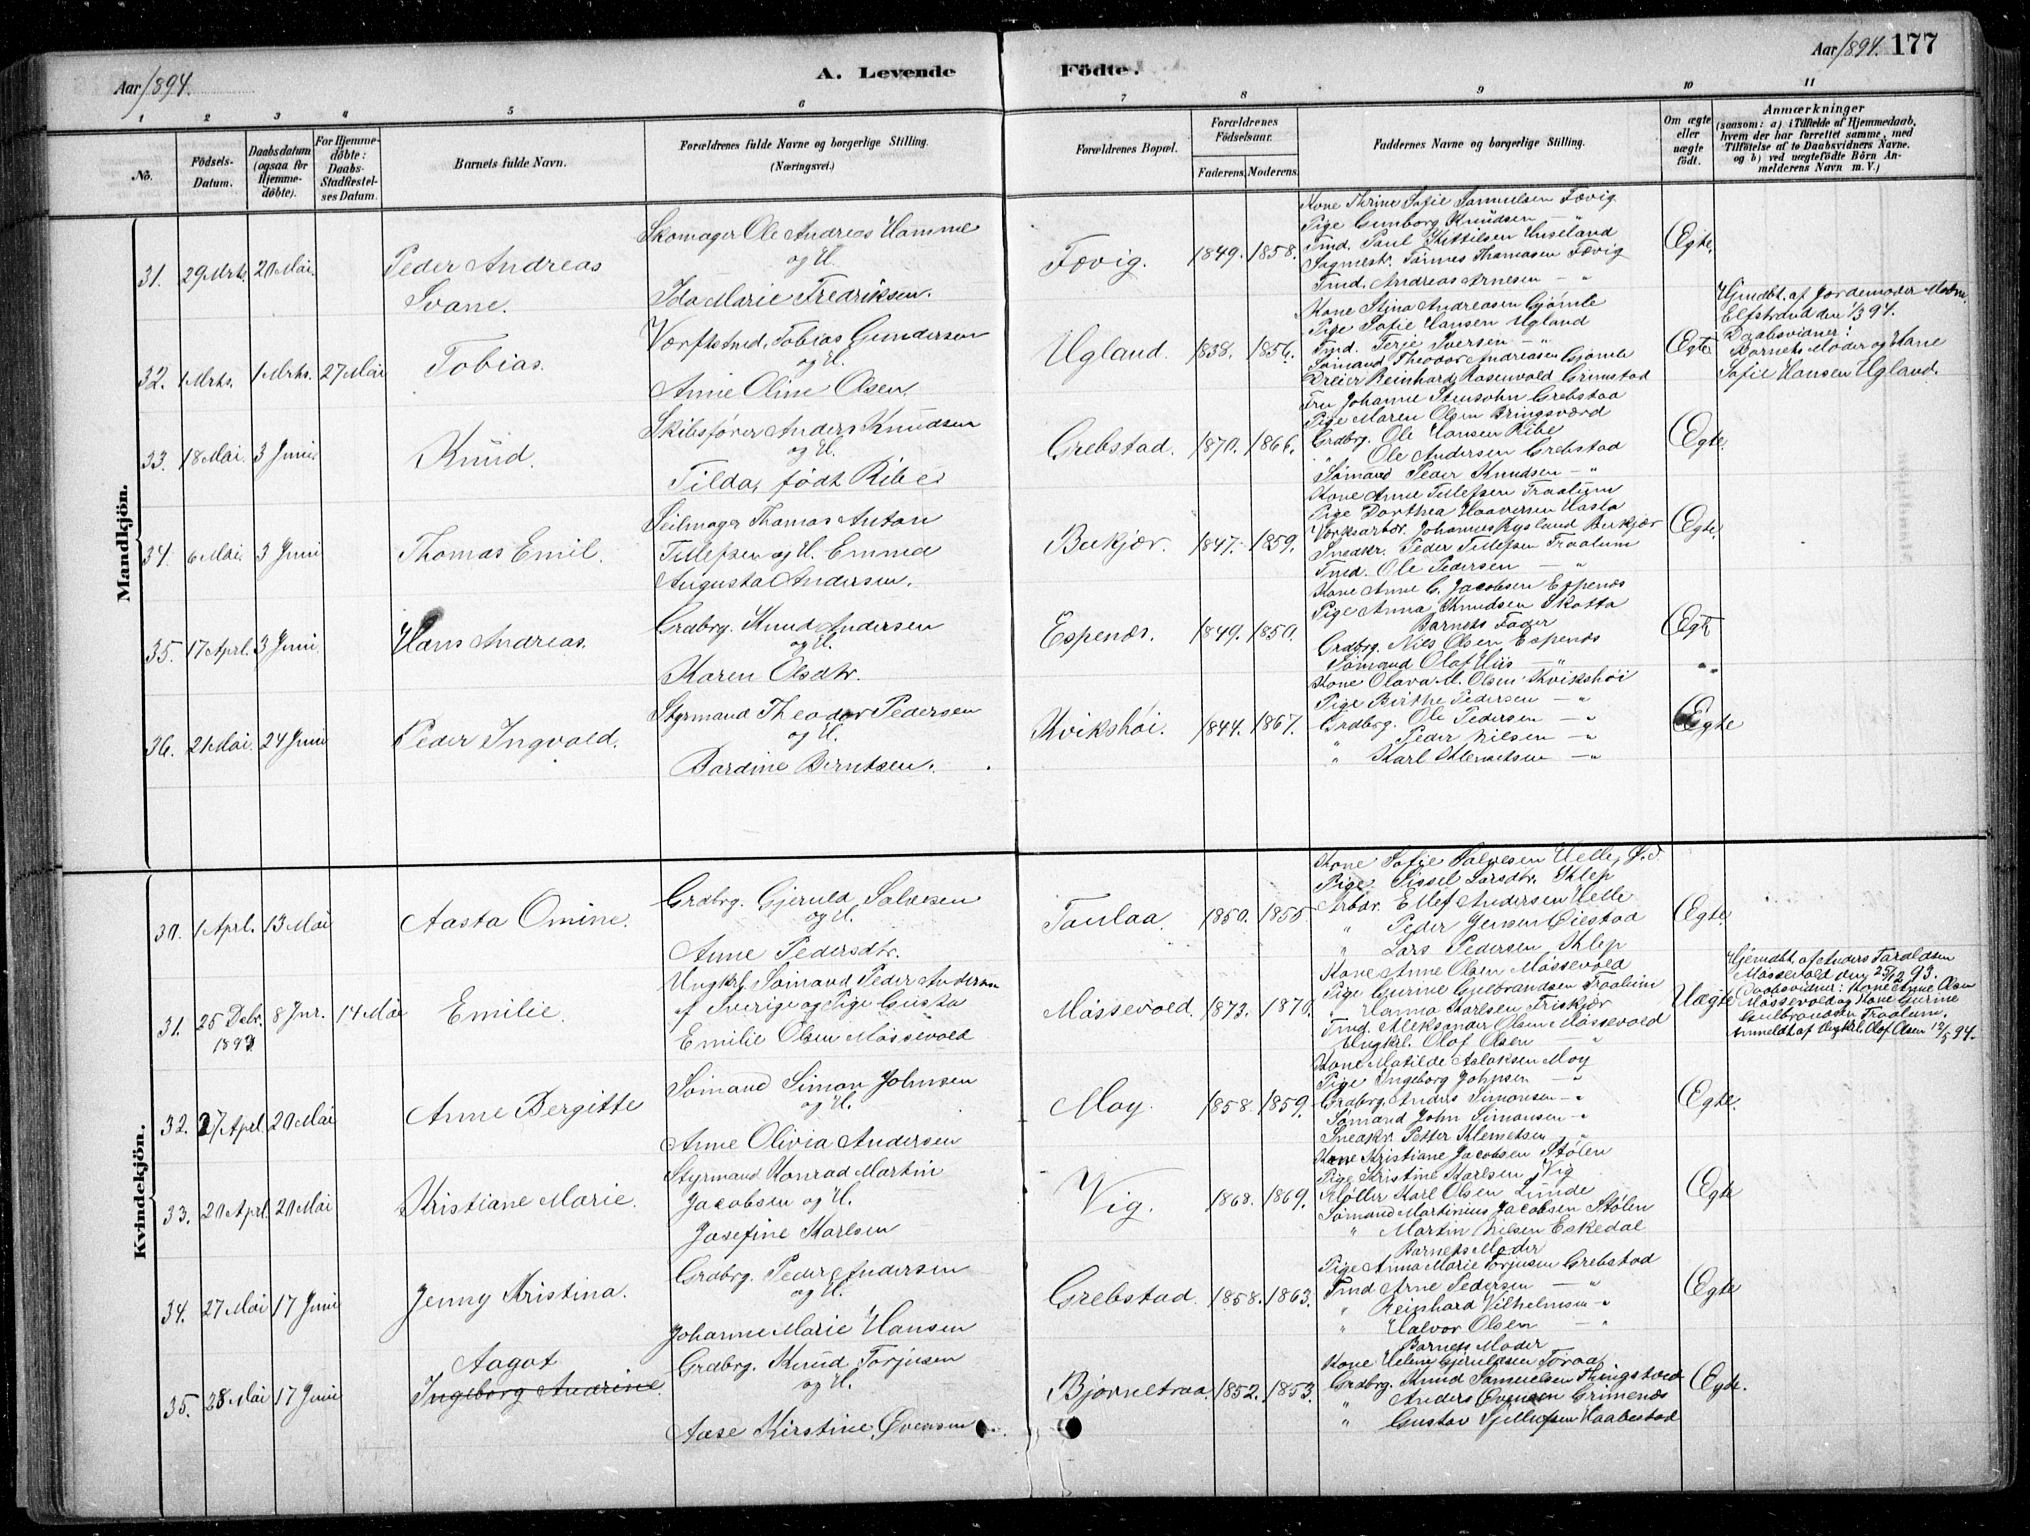 Aar 1894.
A. Levende
Födte.
Aar 1894. 177
1 2 3 4 5 6 7 8 9 10 11
No.
Födsels-
Datum.
Daabsdatum
(ogsaa for
Hjemme-
döbte).
For Hjemme-
döbte:
Daabs-
Stadfæstel-
ses Datum.
Barnets fulde Navn.
Forældrenes fulde Navne og borgerlige Stilling.
(Næringsvei.)
Forældrenes Bopæl.
Forældrenes
Födselsaar.
Faderens. Moderens.
Faddernes Navne og borgerlige Stilling.
Om ægte
eller
uægte
födt.
Anmærkninger
(saasom: a) i Tilfælde af Hjemmedaab,
hvem der har forrettet samme, med
Tilföielse af to Daabsvidners Navne.
og b) ved uægtefödte Börn An-
melderens Navn m. V.)
Mandkjön.
31. 29 Mrts. 20 Mai.
Peder Andreas
Svane.
Skomager Ole Andreas Hamme
og H.
Ida Marie Fredriksen.
Fævig. 1849. 1858.
Kone Thrine Sofie Samuelsen Fævig
Pige Gunborg Knudsen — "
Tmd. Paul Kittilsen Huseland
Tønnes Thomassen Fævig
Tmd. Andreas Arnesen — "
Egte.
32. 1 Mrts. 1 Mrts. 27 Mai
Tobias.
Værftsmd. Tobias Gundersen
og H.
Anne Oline Olsen.
Ugland. 1838. 1856.
Kone Stina Andreasen Gjömle
Pige Sofie Hansen Ugland
Tmd. Terje Iversen — "
Sömand Theodor Andreasen Gjömle
Dreier Reinhard Rosenvold Grimstad
Egte
Hjmdbt. af Jordemoder
Elfstrand den 1/3 94.
Daabsvidner:
Barnets Moder og Kone
Sofie Hansen Ugland.
33. 18 Mai. 3 Juni.
Knud.
Skibsfører Anders Knudsen
og H.
Tilda, født Ribe
Grebstad. 1870. 1866.
Fru Johanne Stensohn Grebstad
Pige Maren Olsen Bringsværd
Grdbrg. Ole Hansen Ribe
" Ole Andersen Grebstad
Sömand Peder Knudsen — "
Egte.
34. 6 Mai. 3 Juni
Thomas Emil.
Seilmager Thomas Anton
Tellefsen og H. Emma
Augusta Andersen.
Bukjær. 1847. 1859.
Kone Anne Tellefsen Traalum
Pige Dorthea Haaversen Hasla
Værksarbdr. Johannes Rysland Bukjær
Snedkr. Peder Tellefsen Traalum
Tmd. Ole Pedersen — "
Egte.
35. 17 Aprl. 3 Juni
Hans Andreas.
Grdbrg. Knud Andersen
og H.
Karen Olsdtr.
Espenæs. 1849. 1850.
Kone Anne C. Jacobsen Espenæs
Pige Anna Knudsen Skatta
Barnets Fader
Grdbrg. Nils Olsen Espenæs
Sömand Olaf Hiis — "
Egte
"
36. 21 Mai. 24 Juni
Peder Ingvald.
Styrmand Theodor Pedersen
og H.
Bardine Berntsen.
Kvikshøi. 1844. 1867.
Kone Olava M. Olsen Kvikshöi
Pige Birthe Pedersen — "
Grdbrg. Ole Pedersen — "
" Peder Nilsen — "
" Karl Klemetsen — "
Egte
Kvindekjön.
30. 1 Aprl. 13 Mai
Aasta Omine.
Grdbrg. Gjeruld Salvesen
og H.
Anne Pedersdtr.
Taulaa. 1850. 1855
Kone Sofie Salvesen Helle, Ø.d.
Pige Sissel Larsdtr. Klep
Arbdr. Ellef Andersen Helle
" Peder Jensen Øiestad
" Lars Pedersen Klep
Egte.
31. 25 Debr.
1893
8 Jnr. 14 Mai
Emilie.
Ungkrl. Sömand Peder Andersen
af Sverige og Pige Gusta
Emilie Olsen Mössevold
Mössevold. 1873. 1870.
Kone Anne Olsen Mössevold
Pige Gurine Gulbrandsen Traalum
" Hanna Karlsen Friskjær
Tmd. Aleksander Olsen Mössevold
Ungkrl. Olaf Olsen — "
Uægte
Hjemdbt. af Anders Taraldsen
Mössevold den 25/12 93.
Daabsvidner: Kone Anne Olsen
Mössevold og Kone Gurine
Gulbrandsen Traalum.
Anmeldt af Ungkrl. Olaf Olsen 12/5 94.
32. 27 Aprl 20 Mai
Anne Bergitte
Sömand Simon Johnsen
og H.
Anne Olivia Andersen
Moy. 1858. 1859.
Kone Matilde Aslaksen Moy
Pige Ingeborg Johnsen — "
Grdbrg. Anders Simonsen — "
Sömand John Simonsen — "
Snedkr. Petter Klemetsen "
Egte.
33. 20 Aprl. 20 Mai
Kristiane Marie.
Styrmand Konrad Martin
Jacobsen og H.
Josefine Karlsen
Vig. 1868. 1869.
Kone Kristiane Jacobsen Stølen
Pige Kristine Karlsen Vig
Møller Karl Olsen Lunde
Sömand Martinius Jacobsen Stølen
" Martin Nilsen Eskedal
Egte
34. 27 Mai 17 Juni
Jenny Kristina.
Grdbrg. Peder Andersen
og H.
Johanne Marie Hansen
Grebstad. 1858. 1863.
Barnets Moder
Pige Anna Marie Torjusen Grebstad
Tmd Arne Pedersen — "
" Reinhard Vilhelmsen — "
" Halvor Olsen — "
Egte
35. 28 Mai 17 Juni
Aagot
Ingeborg Andrine.
Grdbrg. Knud Torjusen
og H.
Aase Kirstine Øvensen
Bjørnetraa. 1852. 1853.
Barnets Moder
Kone Helene Gjeruldsen Toraa
Grdbrg. Knud Samuelsen Thingstved
" Anders Evensen Grimenæs
" Gustav Haabestad
Egte.